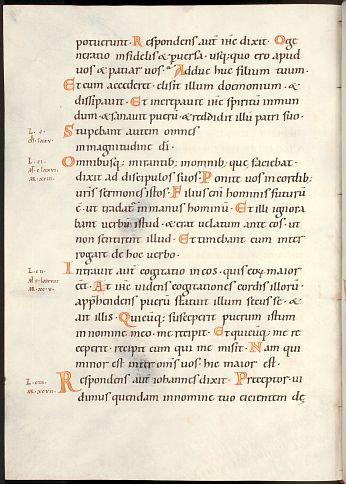 potuerunt. Respondens aut ihc dixit. O ge
neratio infidelis & puersa. usq;quo ero apud
uos & patiar uos. Adduc huc filium tuum.
Et cum accederet. elisit illum doemonium. &
dissipauit. Et increpauit ihc spiritū inmun
dum. & sanauit puerū. & reddidit illū patri suo.
Stupebant autem omnes
in magnitudine di.
Omnibusq; mirantib; in omnib; que faciebat.
dixit ad discipulos suos. Ponite uos in cordib;
uris sermones istos. Filius eni hominis futurū
ē. ut tradat in manus hominū. Et illi ignora
bant uerbū istud. & erat uelatum ante eos. ut
non sentirent illud. Et timebant eum inter
rogare de hoc uerbo.
Intrauit aut cogitatio in eos. quis eoz maior
eet. At ihc uidens cogitationes cordis illorū.
apphendens puerū statuit illum secus se. &
ait illis. Quicūq; susceperit puerum istum
in nomine meo. me recipit. Et quicūq; me re
ceperit. recipit eum qui me misit. Nam qui
minor est inter oms uos. hic maior est.
Respondens aut iohannes dixit. Preceptor. ui
dimus quendam in nomine tuo eicientem dę